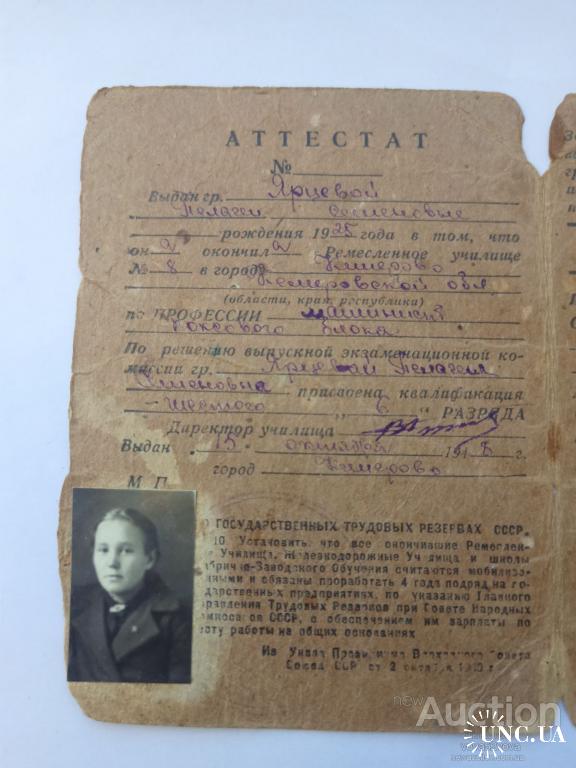 АТТЕСТАТ
№
Выдан гр. Ярцевой
Пелагеи Семеновые
рождения 1925 года в том, что
он а окончил а Ремесленное училище
№ 8 в городе Кемерово
Кемеровской обл
(области, края, республики)
по ПРОФЕССИИ машинист
коксового блока
По решению выпускной экзаменационной ко-
миссии гр. Ярцевой Пелагея
Семеновна присвоена квалификация
- шестого „ 6 " РАЗРЯДА
Директор училища
Выдан „ 15 октября 194 г.
город Кемерово
М П
О ГОСУДАРСТВЕННЫХ ТРУДОВЫХ РЕЗЕРВАХ СССР.
10 Установить, что все окончившие Ремеслен-
е Училища, Железнодорожные Училища и школы
абрично-Заводского Обучения считаются мобилизо-
нными и обязаны проработать 4 года подряд на го-
дарственных предприятиях, по указанию Главного
равления Трудовых Резервов при Совете Народных
миссаров СССР, с обеспечением им зарплаты по
сту работы на общих основаниях
Из Указа Президиума Верховного Совета
Союза ССР от 2 октября 1940 г
new
Auction
UNC.UA